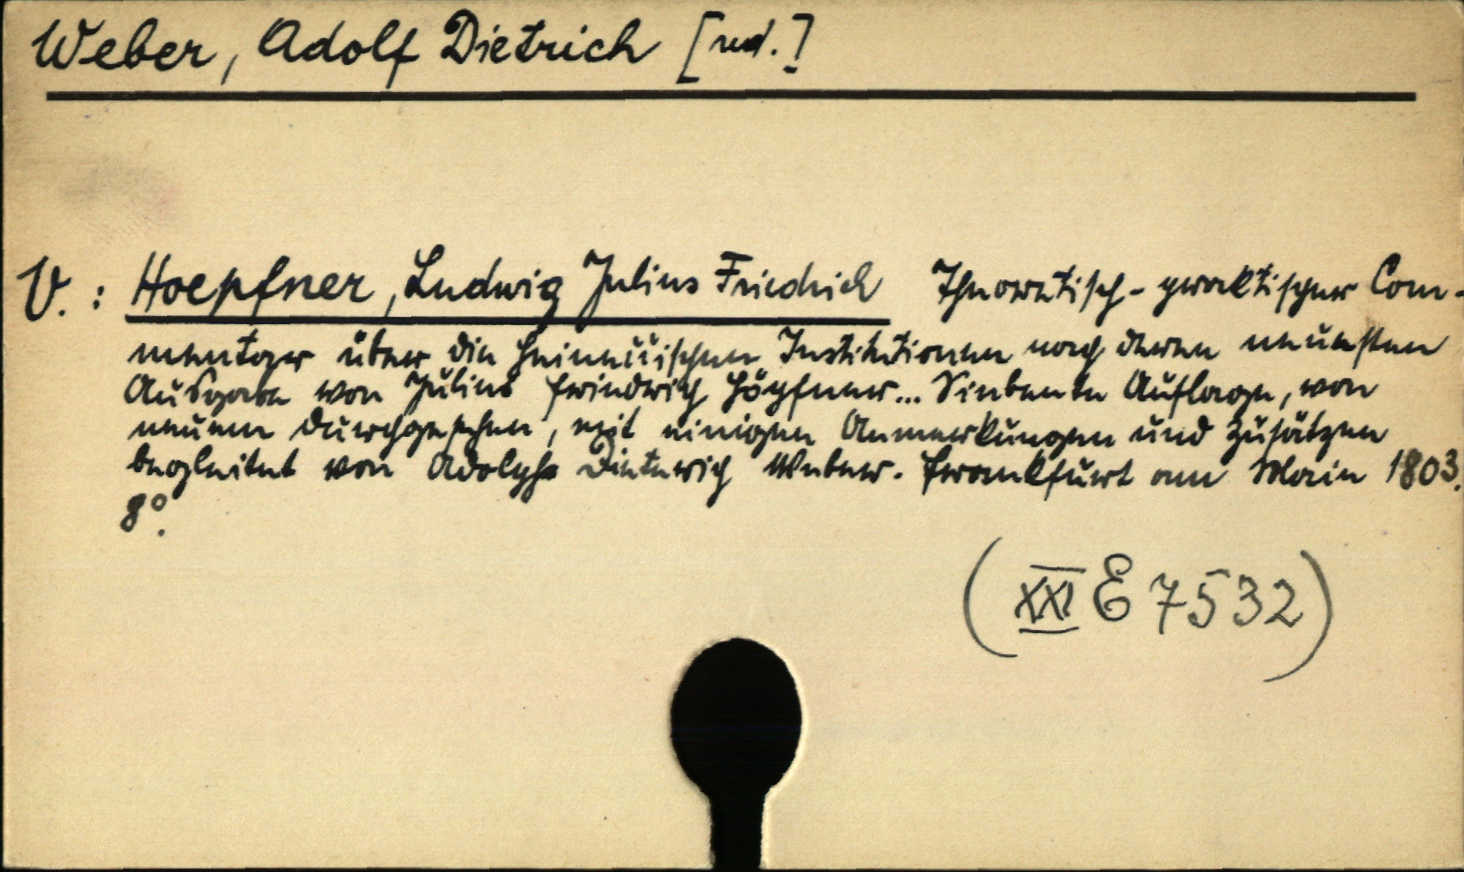 Weber, Adolf Dietrich [red.]
V.: Hoepfner, Ludwig Julius Friedrich Theoretisch-practischer Com-
mentar über die Heineccischen Institutionen nach deren neuesten
Ausgabe von Julius Friedrich Höpfner... Siebente Auflage, von
neuem durchgesehen, mit einigen Anmerkungen und Zusätzen
begleitet von Adolph Dieterich Weber. Frankfurt am Main 1803.
8°.
(XXI E 7532)